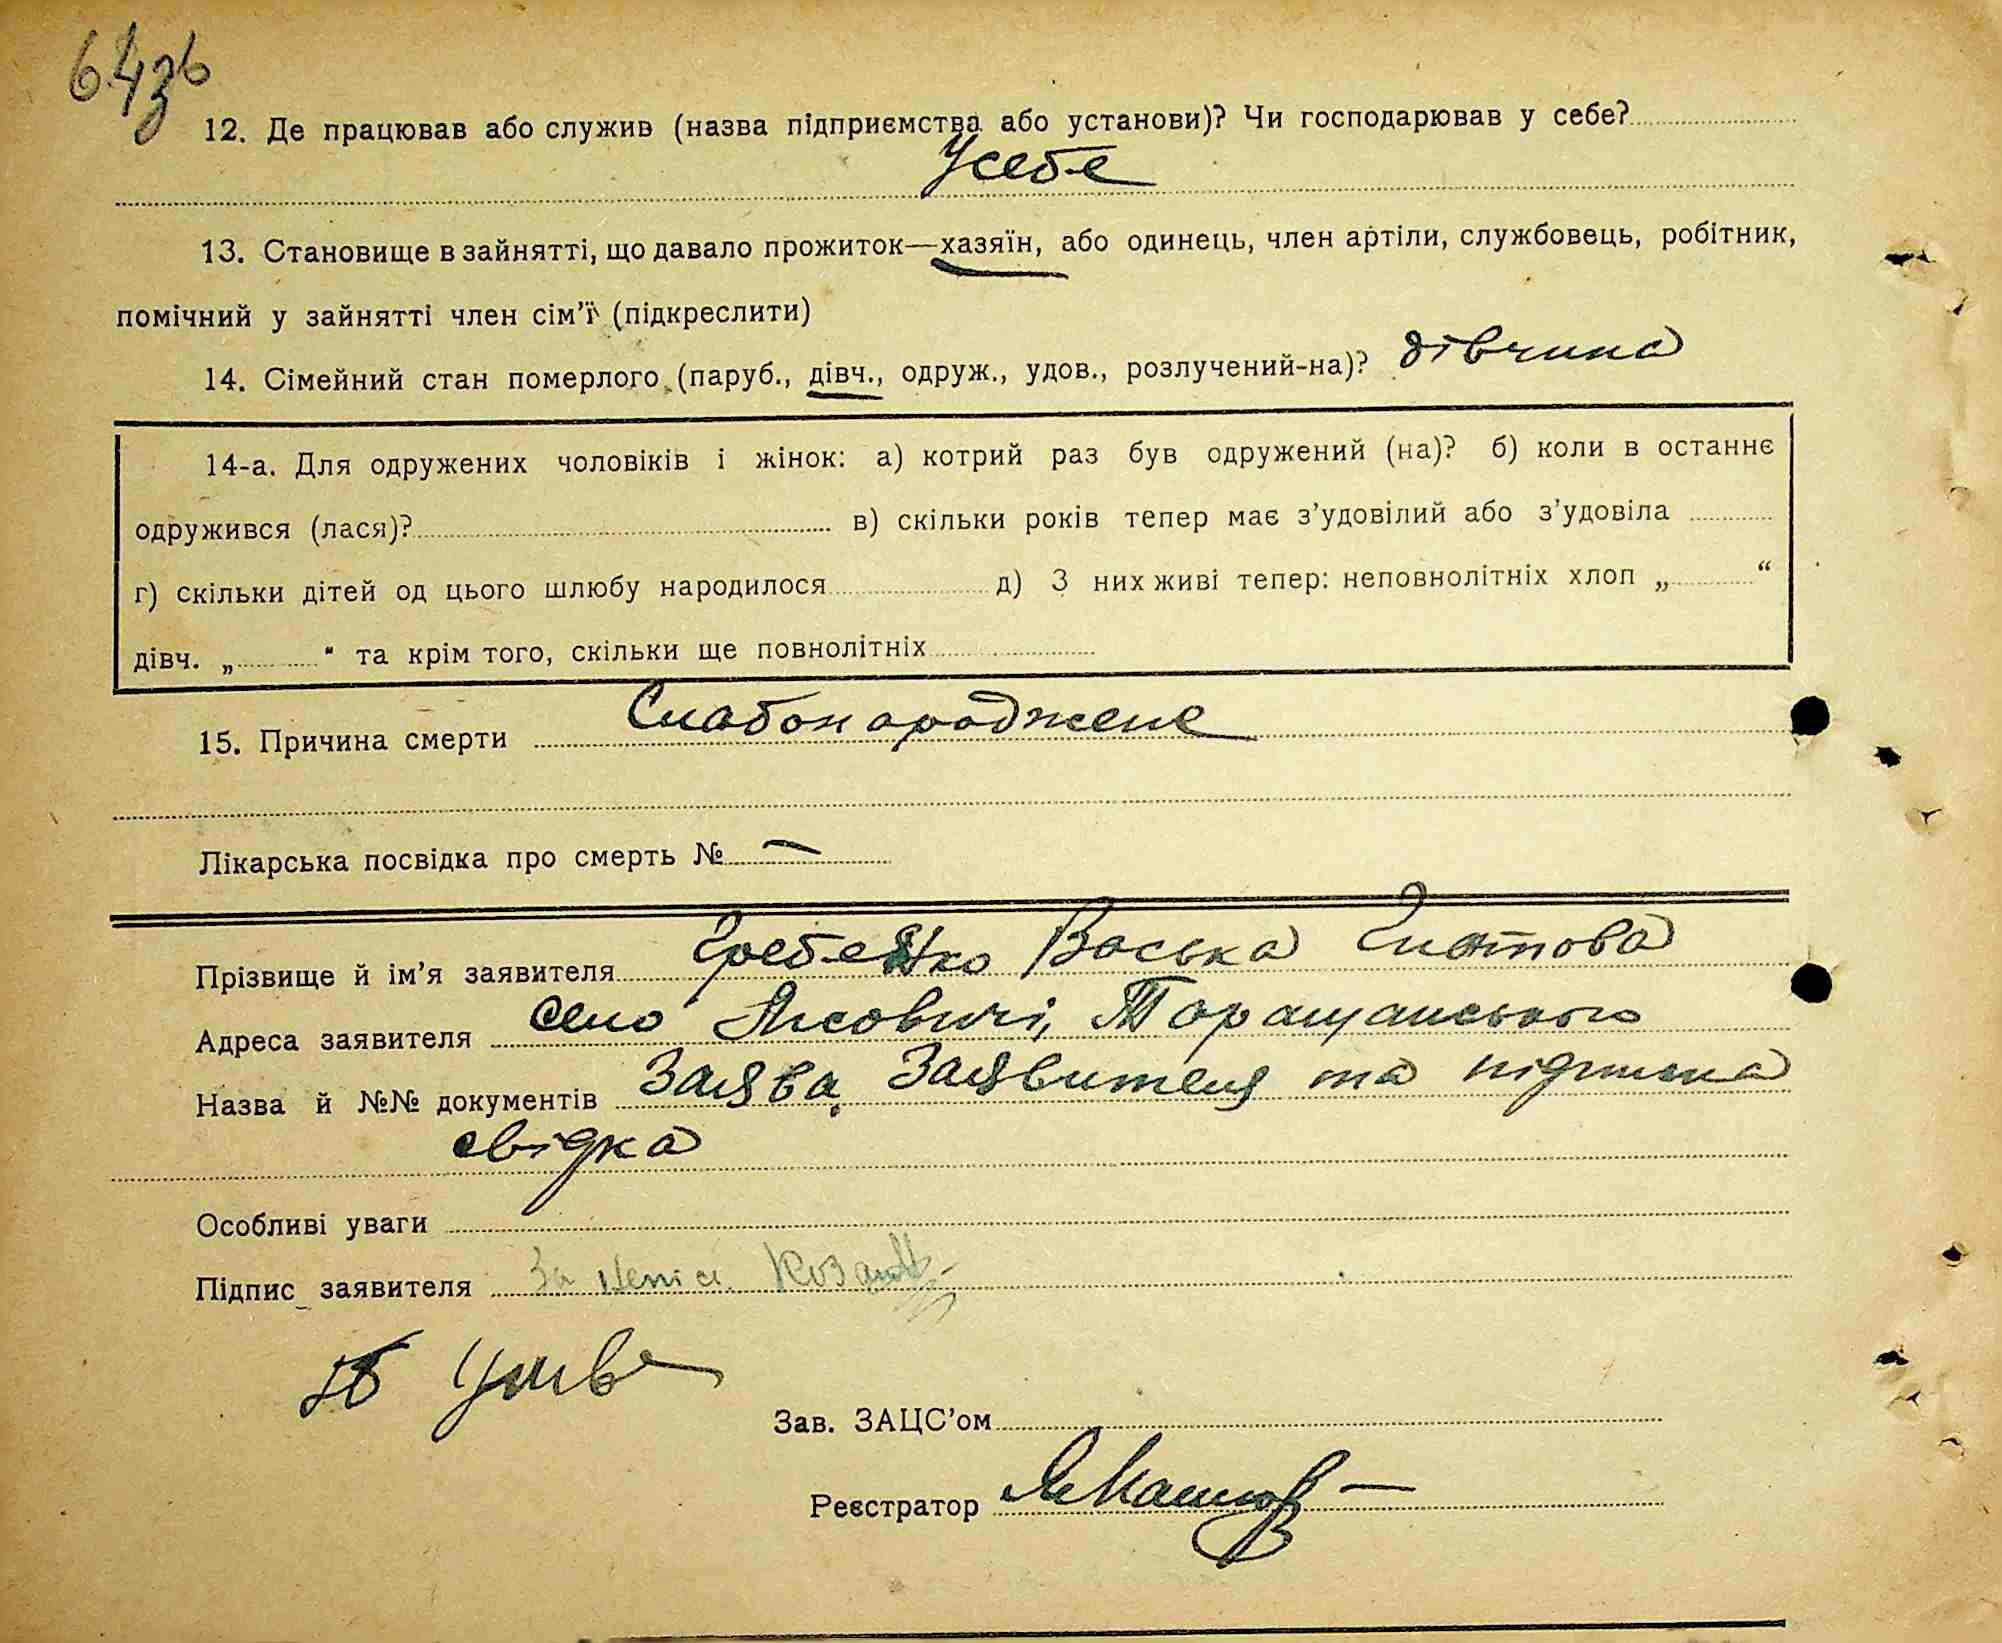 64зв
12. Де працював або служив (назва підприємства або установи)? Чи господарював у себе?
У себе
13. Становище в зайнятті, що давало прожиток—хазяїн, або одинець, член артіли, службовець, робітник,
помічний у зайнятті член сім’ї (підкреслити)
14. Сімейний стан померлого (паруб., дівч., одруж., удов., розлучений-на)? дівчина
14-а. Для одружених чоловіків і жінок: а) котрий раз був одружений (на)? б) коли в останнє
одружився (лася)? в) скільки років тепер має з’удовілий або з’удовіла
г) скільки дітей од цього шлюбу народилося д) З них живі тепер: неповнолітніх хлоп „ “
дівч. „ “ та крім того, скільки ще повнолітніх
15. Причина смерти Слабонароджене
Лікарська посвідка про смерть № —
Прізвище й ім’я заявителя Гребенко Васька
Адреса заявителя село Лісовичі, Таращанського
Назва й №№ документів Заява заявителя та підписка
свідка
Особливі уваги
Підпис заявителя За
Зав. ЗАЦС’ом
Реєстратор